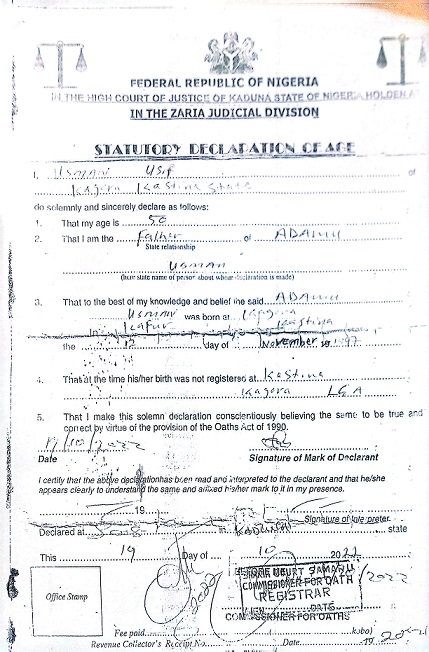 FEDERAL REPUBLIC OF NIGERIA
IN THE HIGH COURT OF JUSTICE OF KADUNA STATE OF NIGERIA HOLDEN AT
IN THE ZARIA JUDICIAL DIVISION
STATUTORY DECLARATION OF AGE
I, USMAN of
State
do solemnly and sincerely declare as follows:
1. That my age is 50
2. That I am the Father of ADAMU
State relationship
USMAN
(here state name of person about whose declaration is made)
3. That to the best of my knowledge and belief the said ADAMU
USMAN was born at
Kafur
the 12 day of November 1997
4. That at the time his/her birth was not registered at
LGA
5. That I make this solemn declaration conscientiously believing the same to be true and
correct by virtue of the provision of the Oaths Act of 1990.
19/10/2022
Date Signature of Mark of Declarant
I certify that the above declaration has been read and interpreted to the declarant and that he/she
appears clearly to understand the same and affixed his/her mark to it in my presence.
19
Signature of Interpreter
Declared at in KADUNA state
This 19 Day of 10
COMMISSIONER FOR OATH
REGISTRAR
COMMISSIONER FOR OATHS
Office Stamp
Fee paid kobo)
Revenue Collector's Receipt No. Date